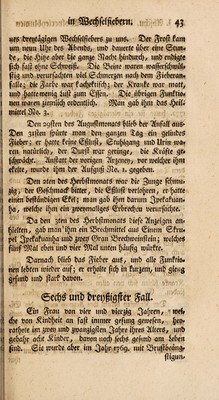 in Wechselfiebern. 43
nes dreytägigen Wechselfiebers zu uns. Der Frost kam
um neun Uhr des Abends, und dauerte über eine Stun-
de, die Hitze aber die ganze Nacht hindurch, und endigte
sich fast ohne Schweiß. Die Beine waren wasserschwül-
stig und verursachten viel Schmerzen nach dem Fieberan-
falle; die Farbe war kachektisch; der Kranke war matt,
und hatte wenig Lust zum Essen. Die übrigen Funktio-
nen waren ziemlich ordentlich. Man gab ihm das Heil-
mittel No. 3.
Den 29sten des Augustmonats blieb der Anfall aus.
Den 31sten spürte man den ganzen Tag ein gelindes
Fieber; er hatte keine Eßlust, Stuhlgang und Urin wa-
ren natürlich, der Durst war geringe, die Kräfte ge-
schwächt. Anstatt der vorigen Arzeney, vor welcher ihm
ekelte, wurde ihm der Aufguß No. 1. gegeben.
Den 2ten des Herbstmonats war die Zunge schmie-
zig, der Geschmack bitter, die Eßlust verlohren, er hatte
einen beständigen Ekel; man gab ihm darum Ipekakuan-
ha, welche ihm ein zweymaliges Erbrechen verursachte.
Da den 7ten des Herbstmonats diese Anzeigen an-
hielten, gab man ihm ein Brechmittel aus Einem Skru-
pel Ipekakuanha und zwey Gran Brechweinstein; welches
fünf Mal oben und vier Mal unten häufig würkte.
Darnach blieb das Fieber aus, und alle Funktio-
nen lebten wieder auf; er erholte sich in kurzem, und gieng
gesund und stark davon.
Sechs und dreyßigster Fall.
Ein Frau von vier und vierzig Jahren, wel-
che von Kindheit an fast immer gesung gewesen, hey-
rathete im zwey und zwanzigsten Jahre ihres Alters, und
gebahr acht Kinder, davon noch sechs gesund am Leben
sind. Sie wurde aber im Jahr 1769. mit Brustbeäng-
stigun-